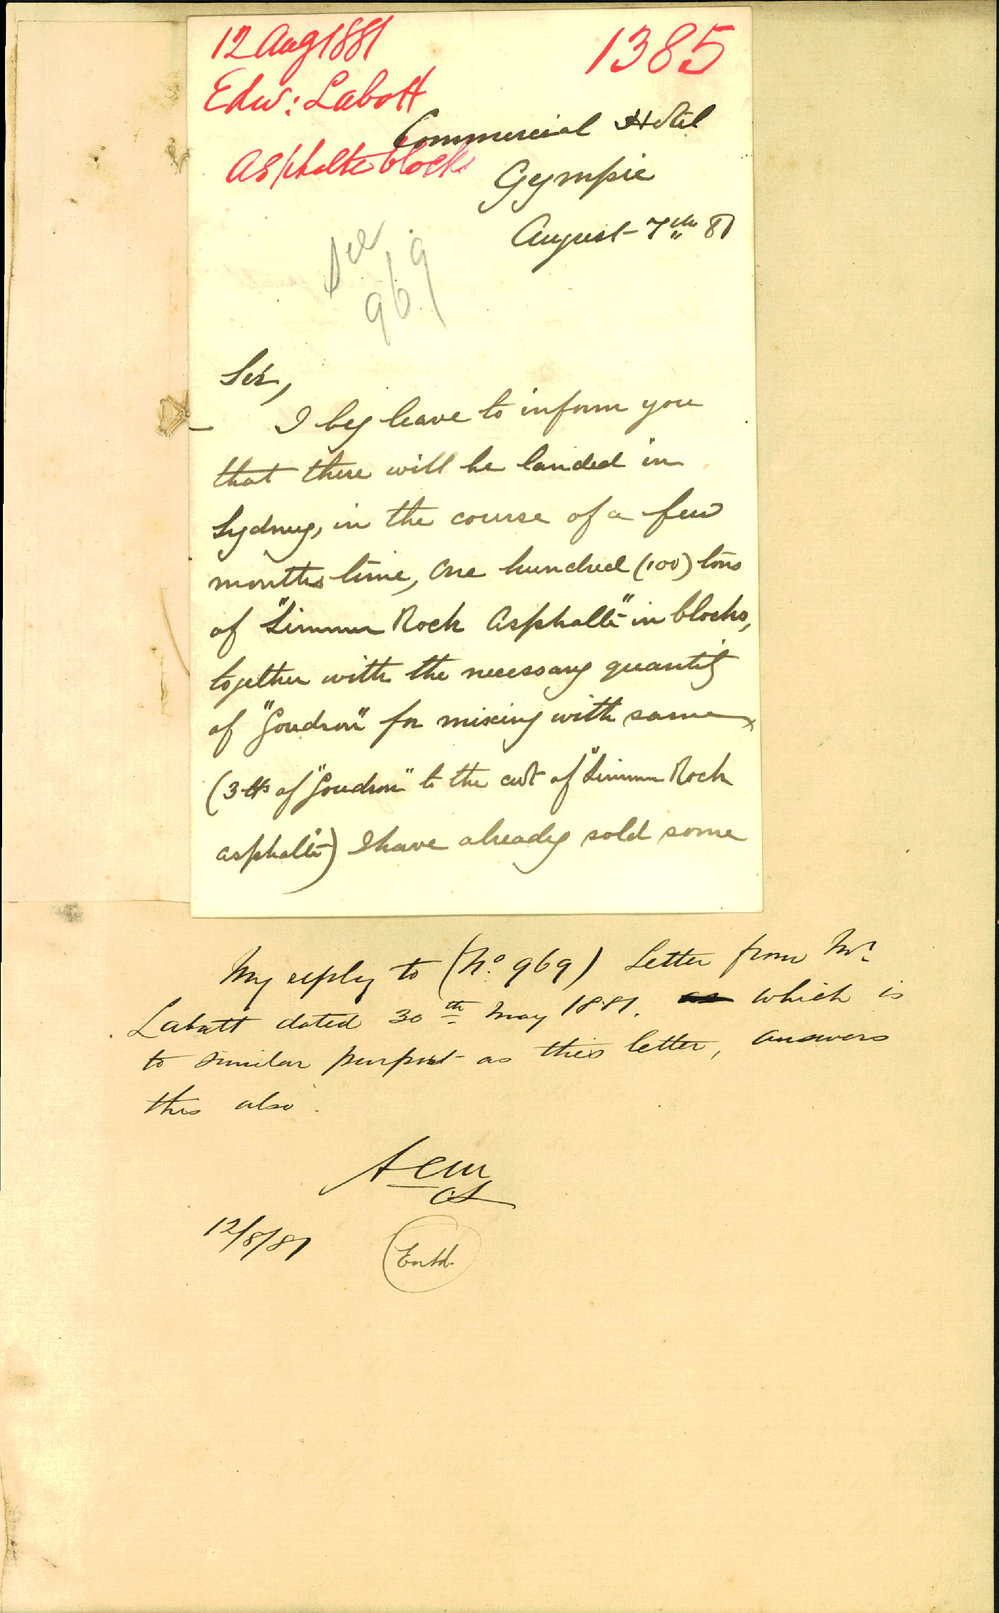 12 Aug 1881
1385
Edw: Labatt
Asphalte blocks
Commercial Hotel
Gympie
August 7th 81
See
969
Sir,
I beg leave to inform you
that there will be landed in
Sydney, in the course of a few
months time, one hundred (100) tons
of "Limmer Rock Asphalte" in blocks,
together with the necessary quantity
of "Goudron" for mixing with same
(3 lbs of "Goudron" to the cwt of "Limmer Rock
asphalte") I have already sold some
My reply to (No. 969) Letter from Mr.
Labatt dated 30th May 1881. as which is
to similar purport as this letter, answers
this also.
CS
12/8/81
Entd.